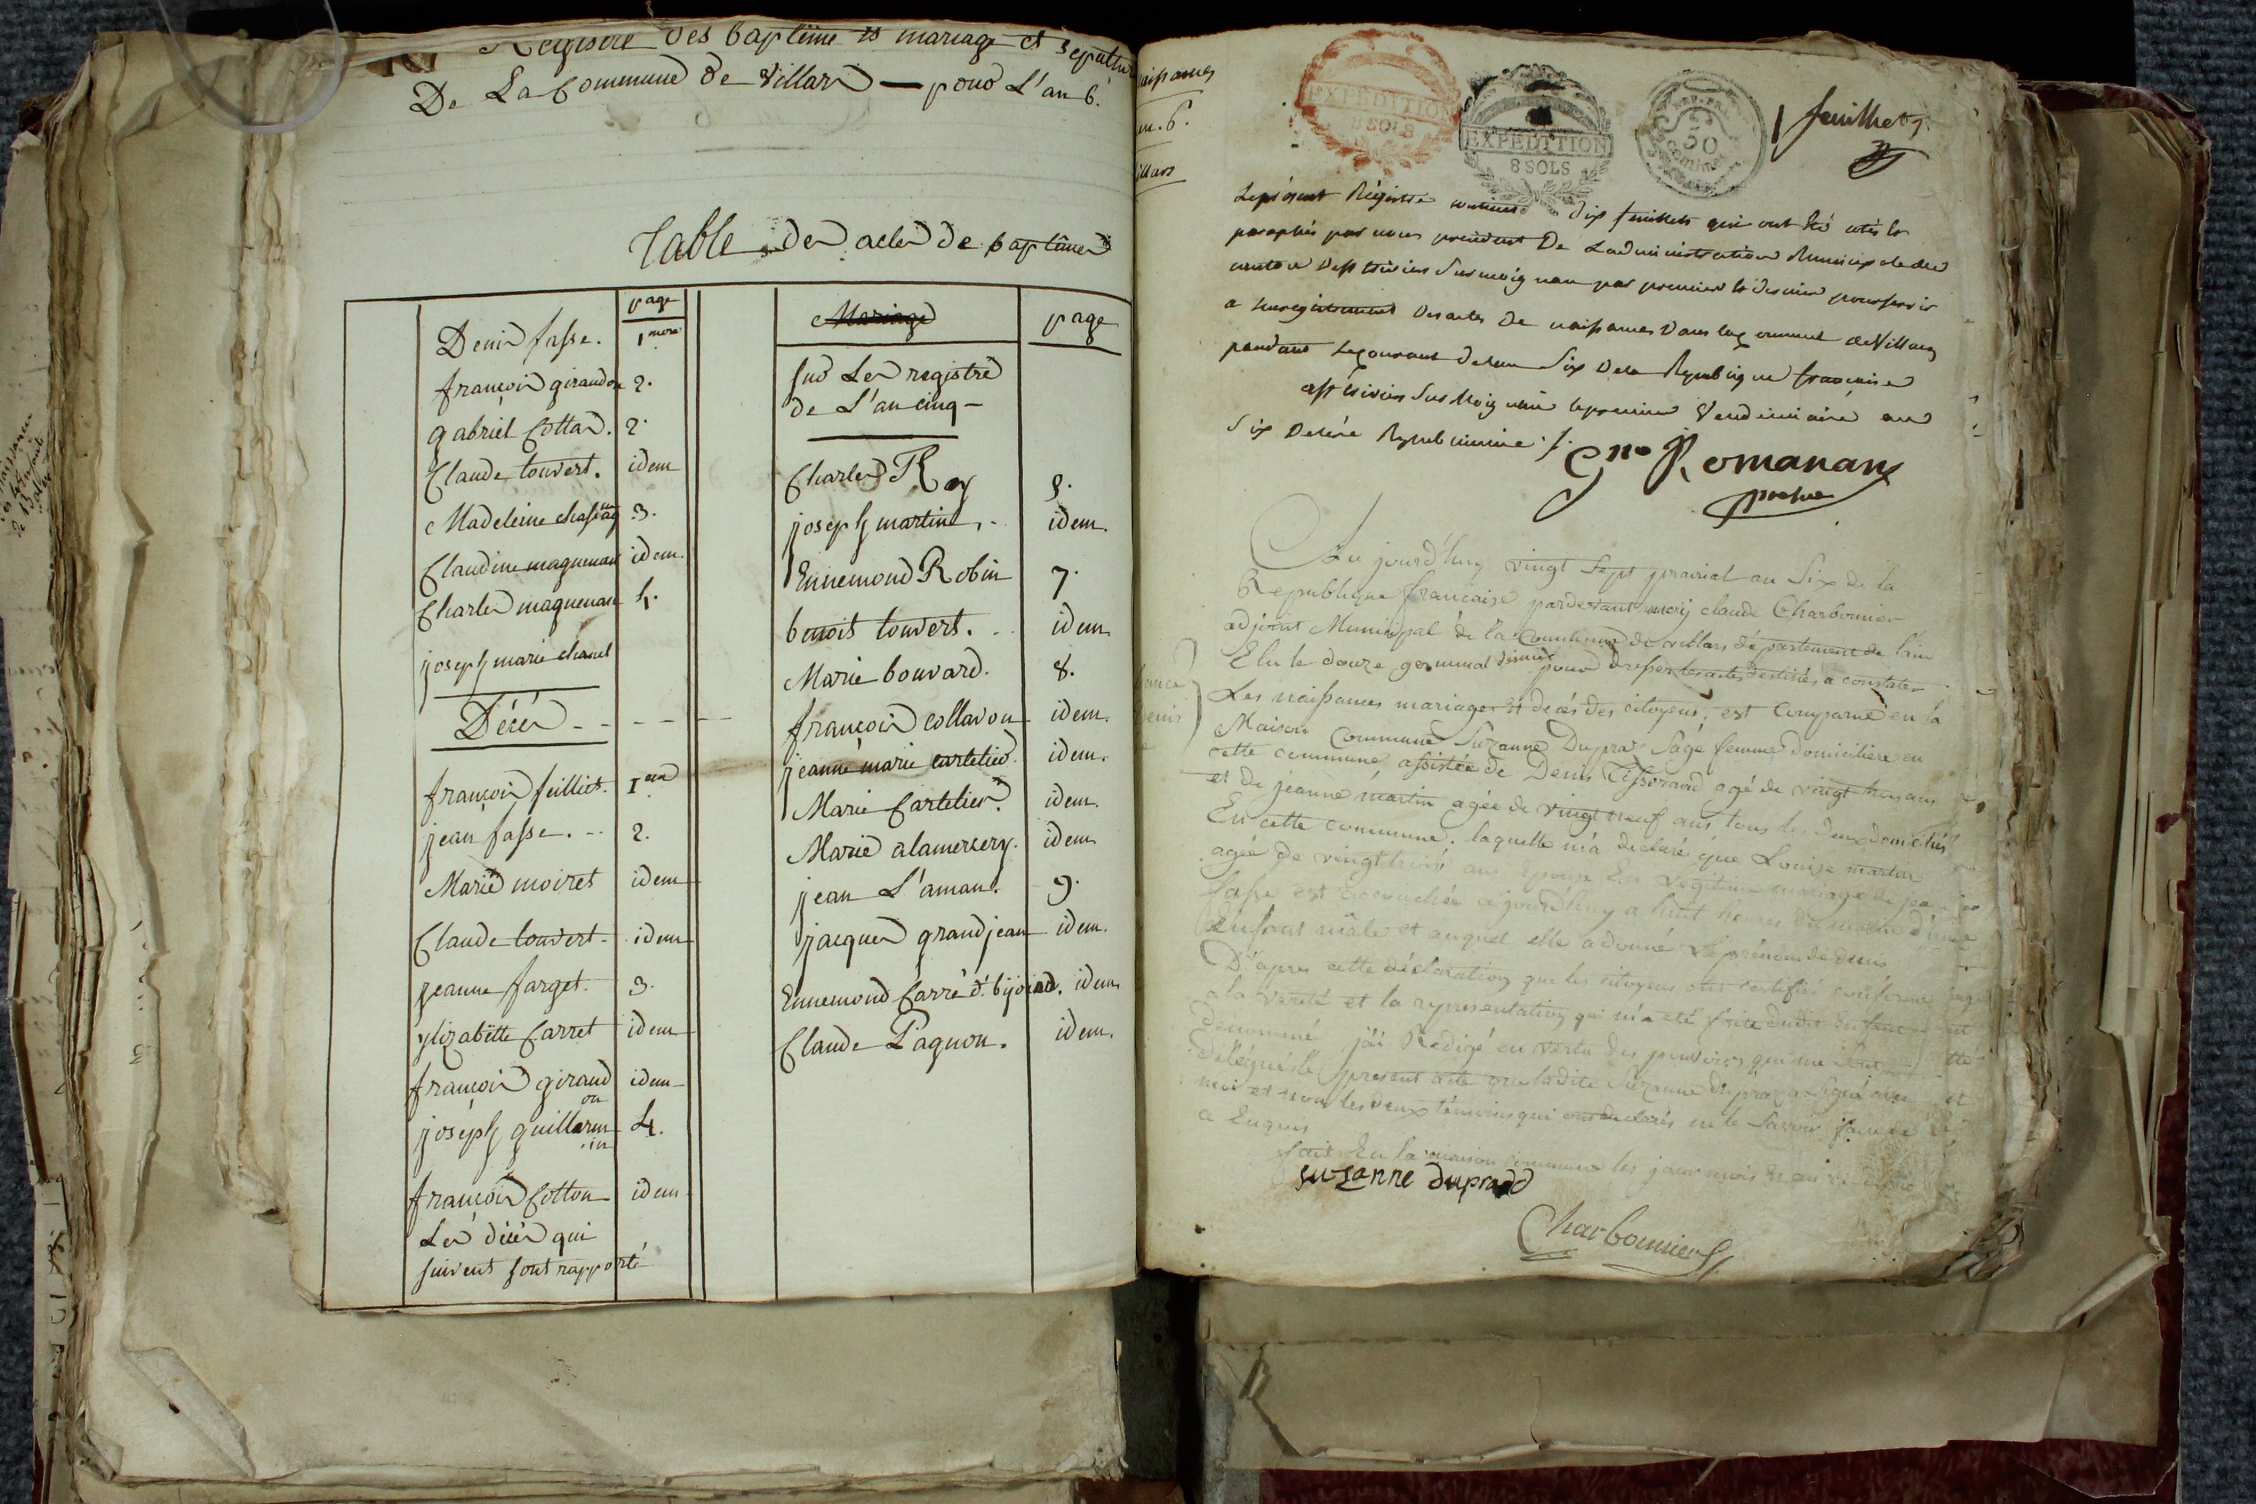 Registre des baptême et mariage et sepultur
De La Commune de Villars — pour L'an 6.
Table des actes de baptêmes
page
Denis fasse. 1mere
françois girandon 2.
gabriel Cottar. 2.
Claude touvert. idem
Madeleine 3.
Claudine maguenan idem.
Charles maguenan 4.
joseph marie chanel
Décès - - - - -
françois feilliet. 1er
jean fasse. - - 2.
Marie moiret idem
Claude touvert - idem
jeanne farget. 3.
ylizabette Carret idem
françois giraud idem
on
joseph guillerm 4.
in
françois Cotton idem
Les décès qui
suivent sont rapporté
Mariage page
sur Les registre
de L'an cinq -
Charles Roy
joseph martin, - idem.
Ennemond Robin 7.
benoit touvert. - - idem
Marie bouvard. 8.
françois collavon idem.
jeanne marie cartelier. idem.
Marie Cartelier. idem.
Marie alamercery. idem
jean L'aman. 9.
jacques grandjean idem.
Ennemond Carré d. idem
Claude Pagnon. idem.
aissances
an. 6.
illars
EXPEDITION
8 SOLS
EXPEDITION
8 SOLS
REP. FRA
50
CENTIMES
1 feuillet
Le présent Régistre contient dix feuillets qui ont été cotés et
paraphés par nous président De Ladministration Municipale du
canton De par premier et dernier pour servir
a Enregistrement des actes De naissances Dans la Commune de Villars
pendant Le courant de lan Six De la Republique française
le premier Vendemiaire an
Six De lère Republicaine ./.
Gme Romanans
Au jourd'huy vingt sept prairial an Six de la
Republique française pardevant moy claude Charbonnier
adjoint Municipal de la Commune de villars département de l'ain
Elu le douze germinal dernier pour dresser les actes destinés a constater
Les naissances mariages et décés des citoyens, est Comparue en la
Maison Commune Suzanne Dupras Sage femme domiciliere en
cette commune assistée de Denis agé de vingt trois ans
et de jeanne martin agée de vingt neuf ans, tous les deux domiciliés
En cette commune. laquelle m'a declaré que Louise martin
agée de vingt trois ans epouse En legitime mariage de
fasse est accouchée aujourd'huy a huit heures du matin d'un
Enfant mâle et auquel elle a donné le prénom de denis
D'apres cette déclaration que les citoyens ont certifié conforme
a la vérité et la representation qui m'a eté faite dudit Enfant
dénommé, j'ai Redigé en vertu des pouvoirs qui me sont
délégués le present acte que ladite Suzanne Dupras a Signé avec
moi et non les deux témoins qui ont declarés ne le Savoir faire de ce
a Enquis
fait En la maison commune les jour mois et an
suzanne duprad
Charbonnier